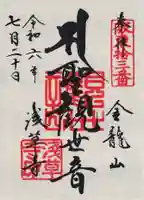 奉拝
坂東拾三番
金龍山
聖観世音
浅草寺
令和六年
七月二十日